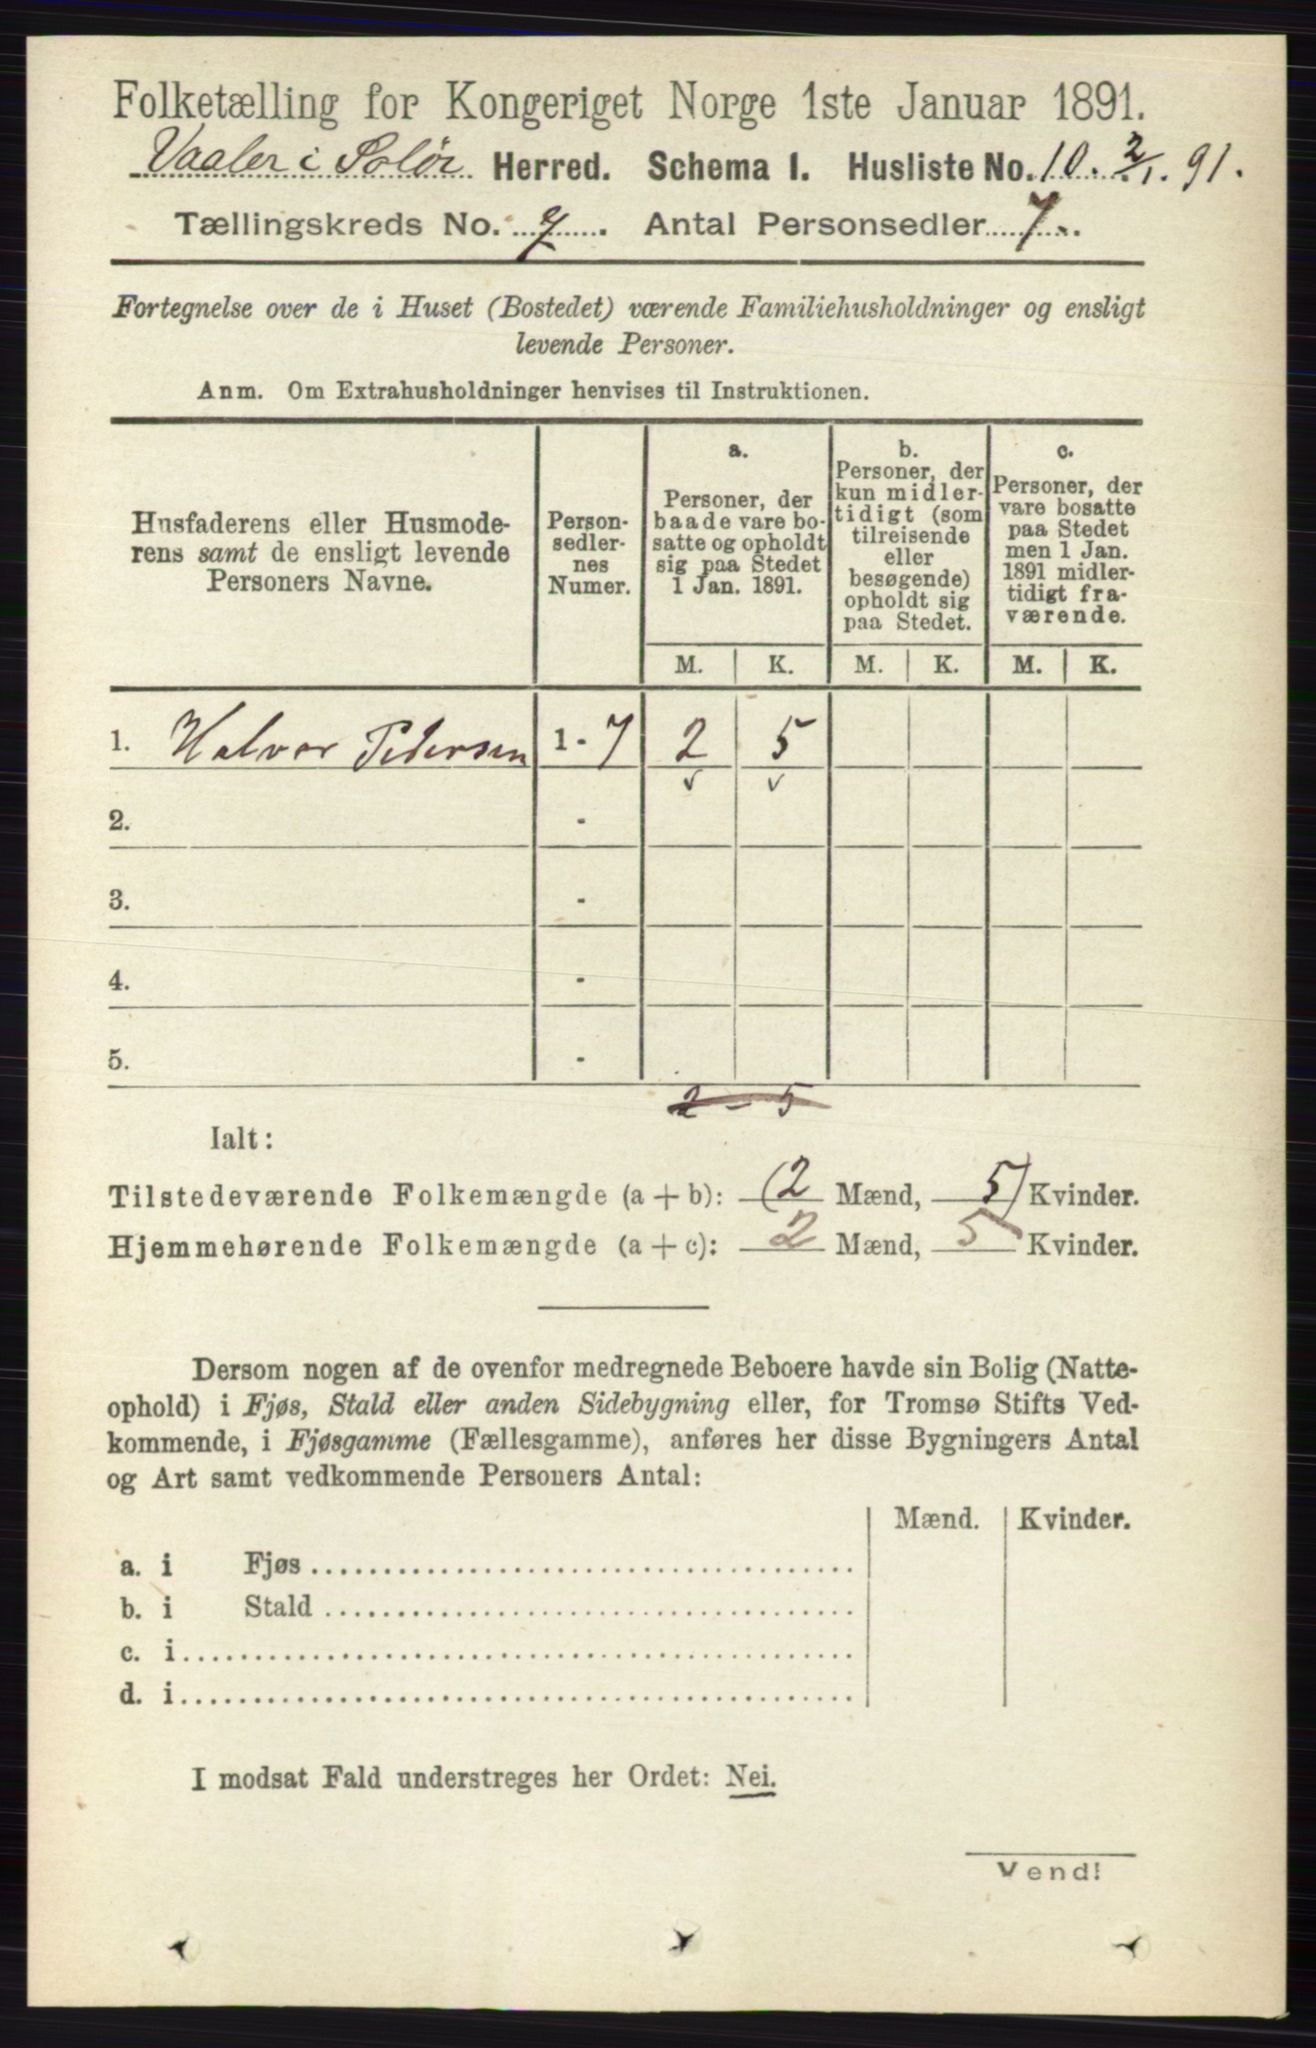 Folketælling for Kongeriget Norge 1ste Januar 1891.
Vaaler i Solør Herred. Schema I. Husliste No. 10. 2/1. 91.
Tællingskreds No. 7. Antal Personsedler 7.
Fortegnelse over de i Huset (Bostedet) værende Familiehusholdninger og ensligt
levende Personer.
Anm. Om Extrahusholdninger henvises til Instruktionen.
Husfaderens eller Husmode-
rens samt de ensligt levende
Personers Navne.
Person-
sedler-
nes
Numer.
a.
Personer, der
baade vare bo-
satte og opholdt
sig paa Stedet
1 Jan. 1891.
b.
Personer, der
kun midler-
tidigt (som
tilreisende
eller
besøgende)
opholdt sig
paa Stedet.
c.
Personer, der
vare bosatte
paa Stedet
men 1 Jan.
1891 midler-
tidigt fra-
værende.
M. K. M. K. M. K.
1. Halvor Pedersen 1 - 7 2 5
2. -
3. -
4. -
5. -
2 - 5
Ialt:
Tilstedeværende Folkemængde (a + b): (2 Mænd, 5) Kvinder.
Hjemmehørende Folkemængde (a + c): 2 Mænd, 5 Kvinder.
Dersom nogen af de ovenfor medregnede Beboere havde sin Bolig (Natte-
ophold) i Fjøs, Stald eller anden Sidebygning eller, for Tromsø Stifts Ved-
kommende, i Fjøsgamme (Fællesgamme), anføres her disse Bygningers Antal
og Art samt vedkommende Personers Antal:
Mænd. Kvinder.
a. i Fjøs
b. i Stald
c. i
d. i
I modsat Fald understreges her Ordet: Nei.
Vend!